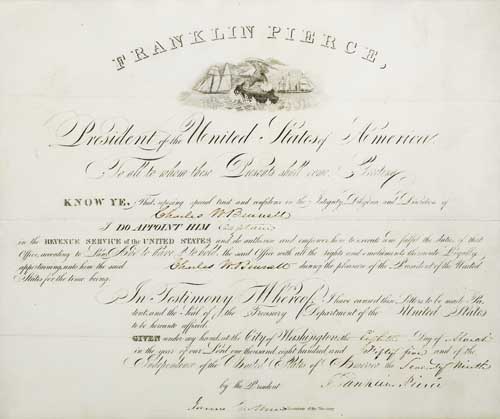 FRANKLIN PIERCE,
President of the United States of America.
To all to whom these Presents shall come, Greeting
KNOW YE, That, reposing special trust and confidence in the Integrity, Diligence and Discretion of
Charles W Bennett
I DO APPOINT HIM Captain
in the REVENUE SERVICE of the UNITED STATES and do authorize and empower him to execute and fulfil the duties of that
Office, according to Law: And to have & to hold the said Office with all the rights and emoluments thereunto legally
appertaining, unto him the said Charles W Bennett during the pleasure of the President of the United
States for the time being.
In Testimony Whereof, I have caused these Letters to be made Pa-
tent, and the Seal of the Treasury Department of the United States
to be hereunto affixed.
GIVEN under my hand, at the City of Washington, the Eighth Day of March
in the year of our Lord one thousand, eight hundred, and Fifty five and of the
Independence of the United States of America the Seventy Ninth
by the President Franklin Pierce
James Guthrie Secretary of the Treasury